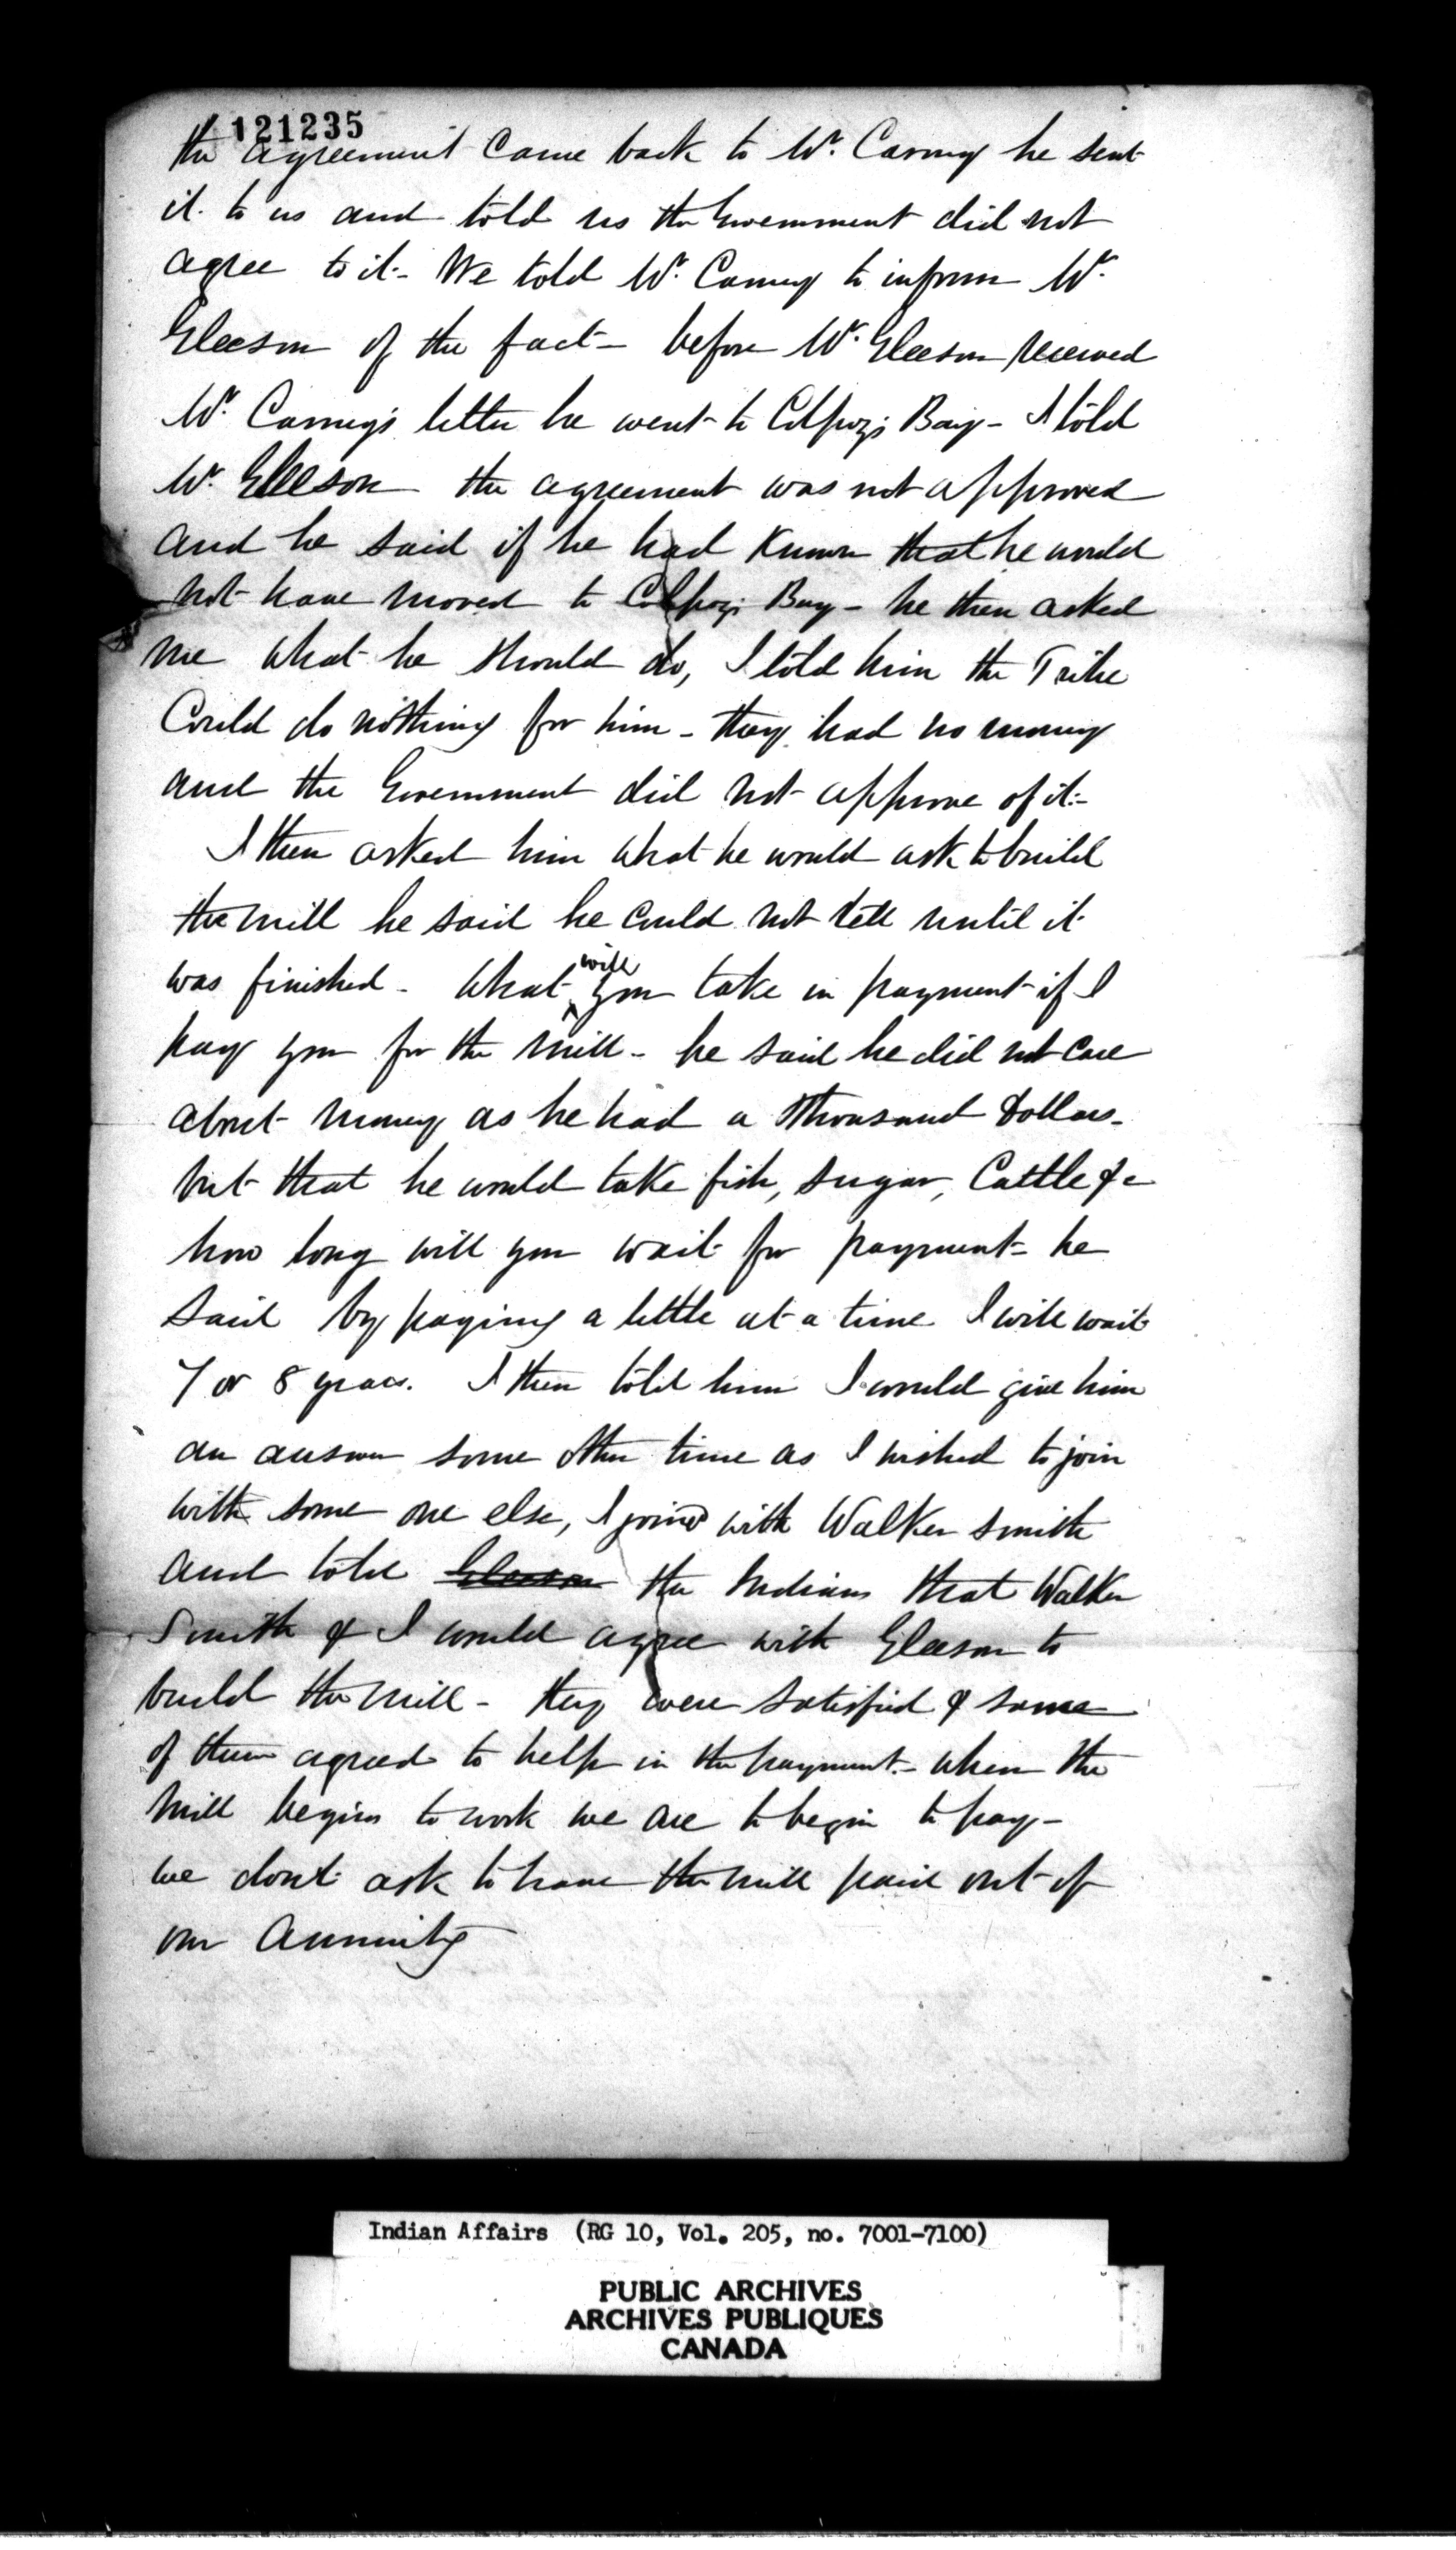 121235
the agreement came back to Mr. Carney he sent
it to us and told us the Government did not
agree to it - We told Mr. Carney to inform Mr.
Gleeson of the fact - before Mr. Gleeson received
Mr. Carney's letter he went to Colpoys Bay - I told
Mr. Gleeson the agreement was not approved
and he said if he had known that he would
not have moved to Colpoys Bay - he then asked
me what he should do, I told him the Tribe
Could do nothing for him - they had no money
and the Government did not approve of it -
I then asked him what he would ask to build
the mill he said he could not tell until it
was finished - What will you take in payment if I
pay you for the mill - he said he did not care
about money as he had a thousand Dollars -
but that he would take fish, sugar, Cattle &c
how long will you wait for payment - he
said by paying a little at a time I will wait
7 or 8 years. I then told him I would give him
an answer some other time as I wished to join
with some one else, I joined with Walker Smith
and told Gleeson the Indians that Walker
Smith & I would agree with Gleeson to
build the mill - they were satisfied & some
of them agreed to help in the payment - when the
mill begins to work we are to begin to pay -
we dont ask to have the mill paid out of
our Annuity
Indian Affairs (RG 10, Vol. 205, no. 7001-7100)
PUBLIC ARCHIVES
ARCHIVES PUBLIQUES
CANADA